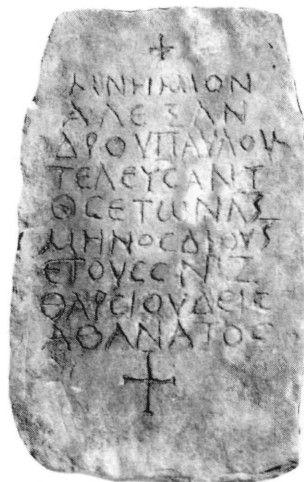 +
ΜΝΗΜΙΟΝ
ΑΛΕΞΑΝ
ΔΡΟΥΠΑΥΛΟΥ
ΤΕΛΕΥCΑΝΤ
ΘCΕΤΩΝΛϚ
ΜΗΝΟCΔΙΟΥϚ
ΕΤΟΥCCΝΖ
ΘΑΡCΙΟΥΔΕΙC
ΑΘΑΝΑΤΟC
+